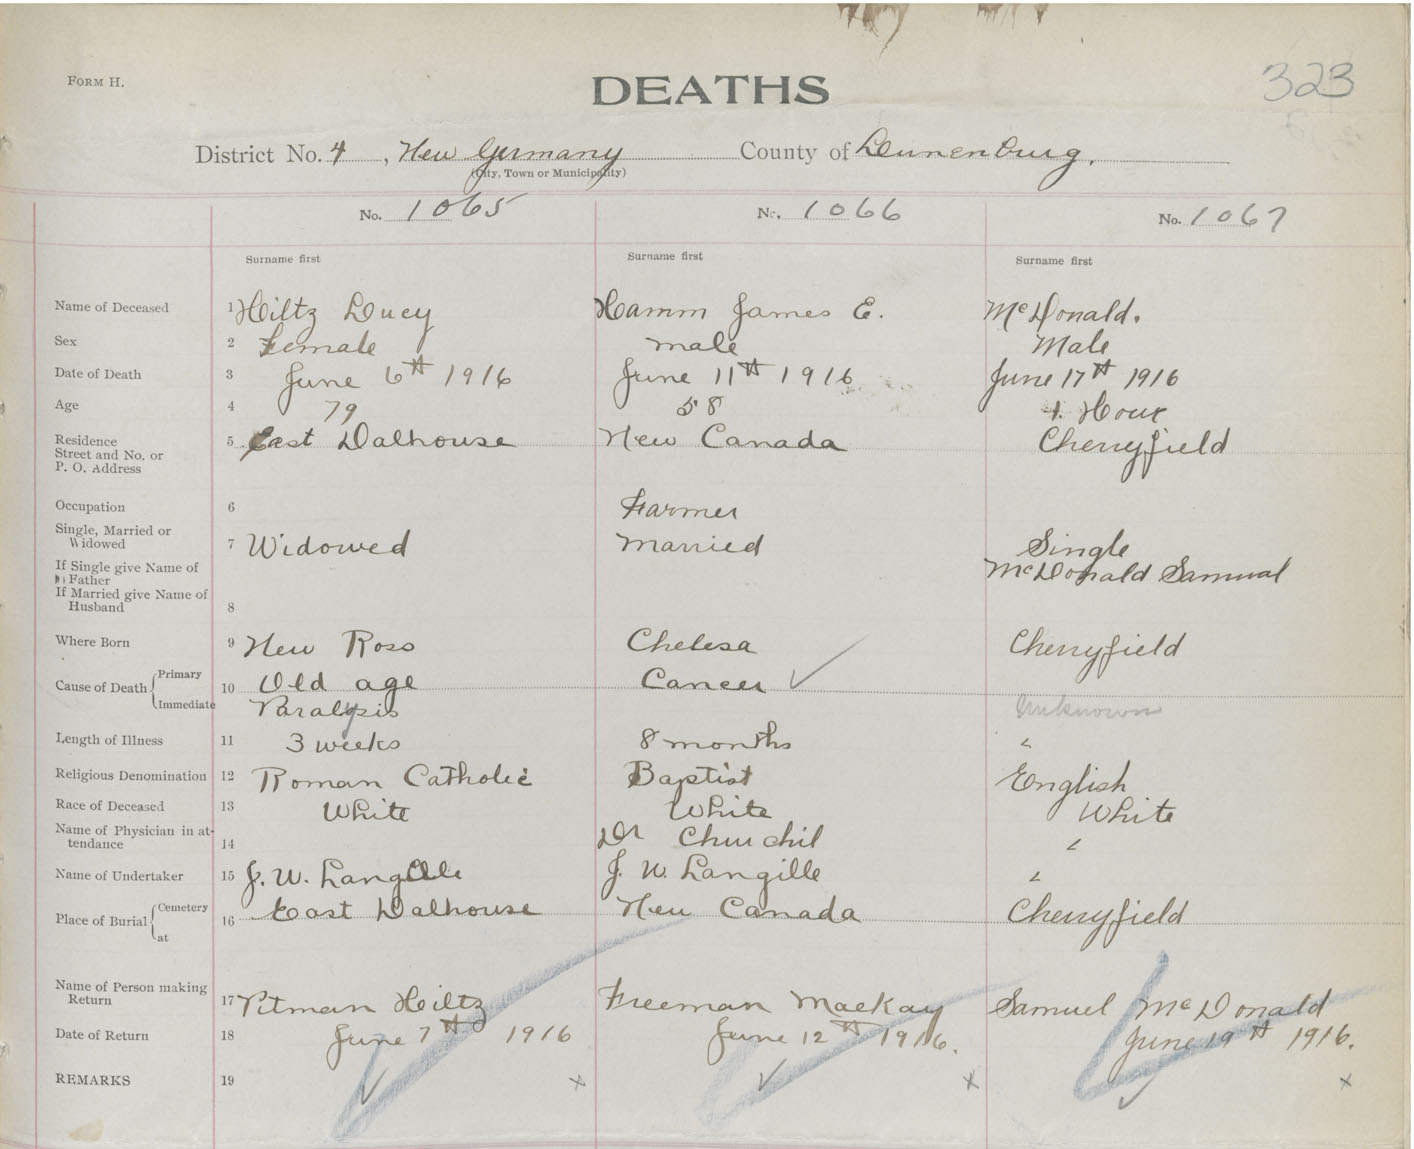 FORM H.
DEATHS
323
District No. 4, New Germany County of Lunenburg.
(City, Town or Municipality)
No. 1065 No. 1066 No. 1067
Surname first Surname first Surname first
Name of Deceased 1 Hiltz Lucy Hamm James E. McDonald.
Sex 2 Female male Male
Date of Death 3 June 6th 1916 June 11th 1916 June 17th 1916
Age 4 79 58 1 Hour
Residence 5 East Dalhouse New Canada Cherryfield
Street and No. or
P. O. Address
Occupation 6 Farmer
Single, Married or
Widowed 7 Widowed Married Single
If Single give Name of McDonald Samual
Father
If Married give Name of
Husband 8
Where Born 9 New Ross Chelesa Cherryfield
Cause of Death Primary 10 Old age Cancer
Immediate Paralysis Unknown
Length of Illness 11 3 weeks 8 months "
Religious Denomination 12 Roman Catholic Baptist English
Race of Deceased 13 White White White
Name of Physician in at-
tendance 14 Dr Churchil "
Name of Undertaker 15 J. W. Langille J. W. Langille "
Place of Burial Cemetery 16 East Dalhouse New Canada Cherryfield
at
Name of Person making
Return 17 Pitman Hiltz Freeman MacKay Samuel McDonald
Date of Return 18 June 7th 1916 June 12th 1916. June 19th 1916.
REMARKS 19 x x x